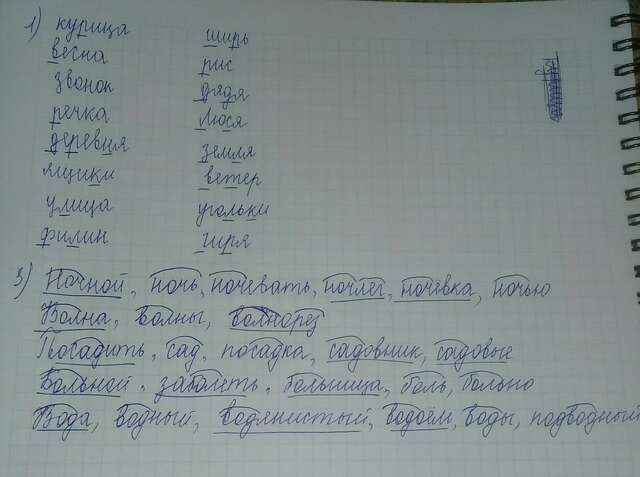 1) курица
весна
звонок
речка
деревня
ящики
улица
филин
ширь
рис
дядя
Люся
земля
ветер
угольки
гиря
3) Ночной, ночь, ночевать, ночлег, ночёвка, ночью
Волна, волны, волнорез
Посадить, сад, посадка, садовник, садовые
Больной, заболеть, больница, боль, больно
Вода, водный, водянистый, водоём, воды, подводный